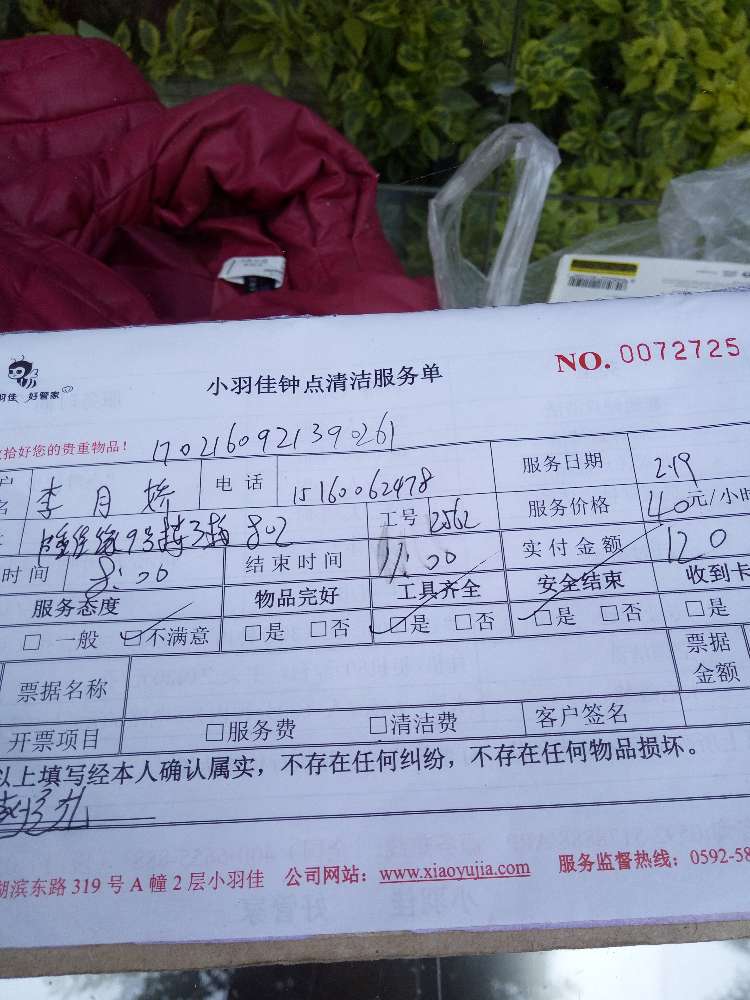 小羽佳钟点清洁服务单
NO. 0072725
羽佳 好管家
拾好您的贵重物品！ 1702160921390261
名 李月娇 电话 15160062478 服务日期 2.19
9号 802 工号 2562 服务价格 40元/小时
时间 8:00 结束时间 11:00 实付金额 120
服务态度 物品完好 工具齐全 安全结束 收到卡
□ 一般 □不满意 □是 □否 □是 □否 □是 □否 □是
票据名称 票据金额
开票项目 □服务费 □清洁费 客户签名
以上填写经本人确认属实，不存在任何纠纷，不存在任何物品损坏。
湖滨东路 319 号 A 幢 2 层小羽佳 公司网站：www.xiaoyujia.com 服务监督热线：0592-58